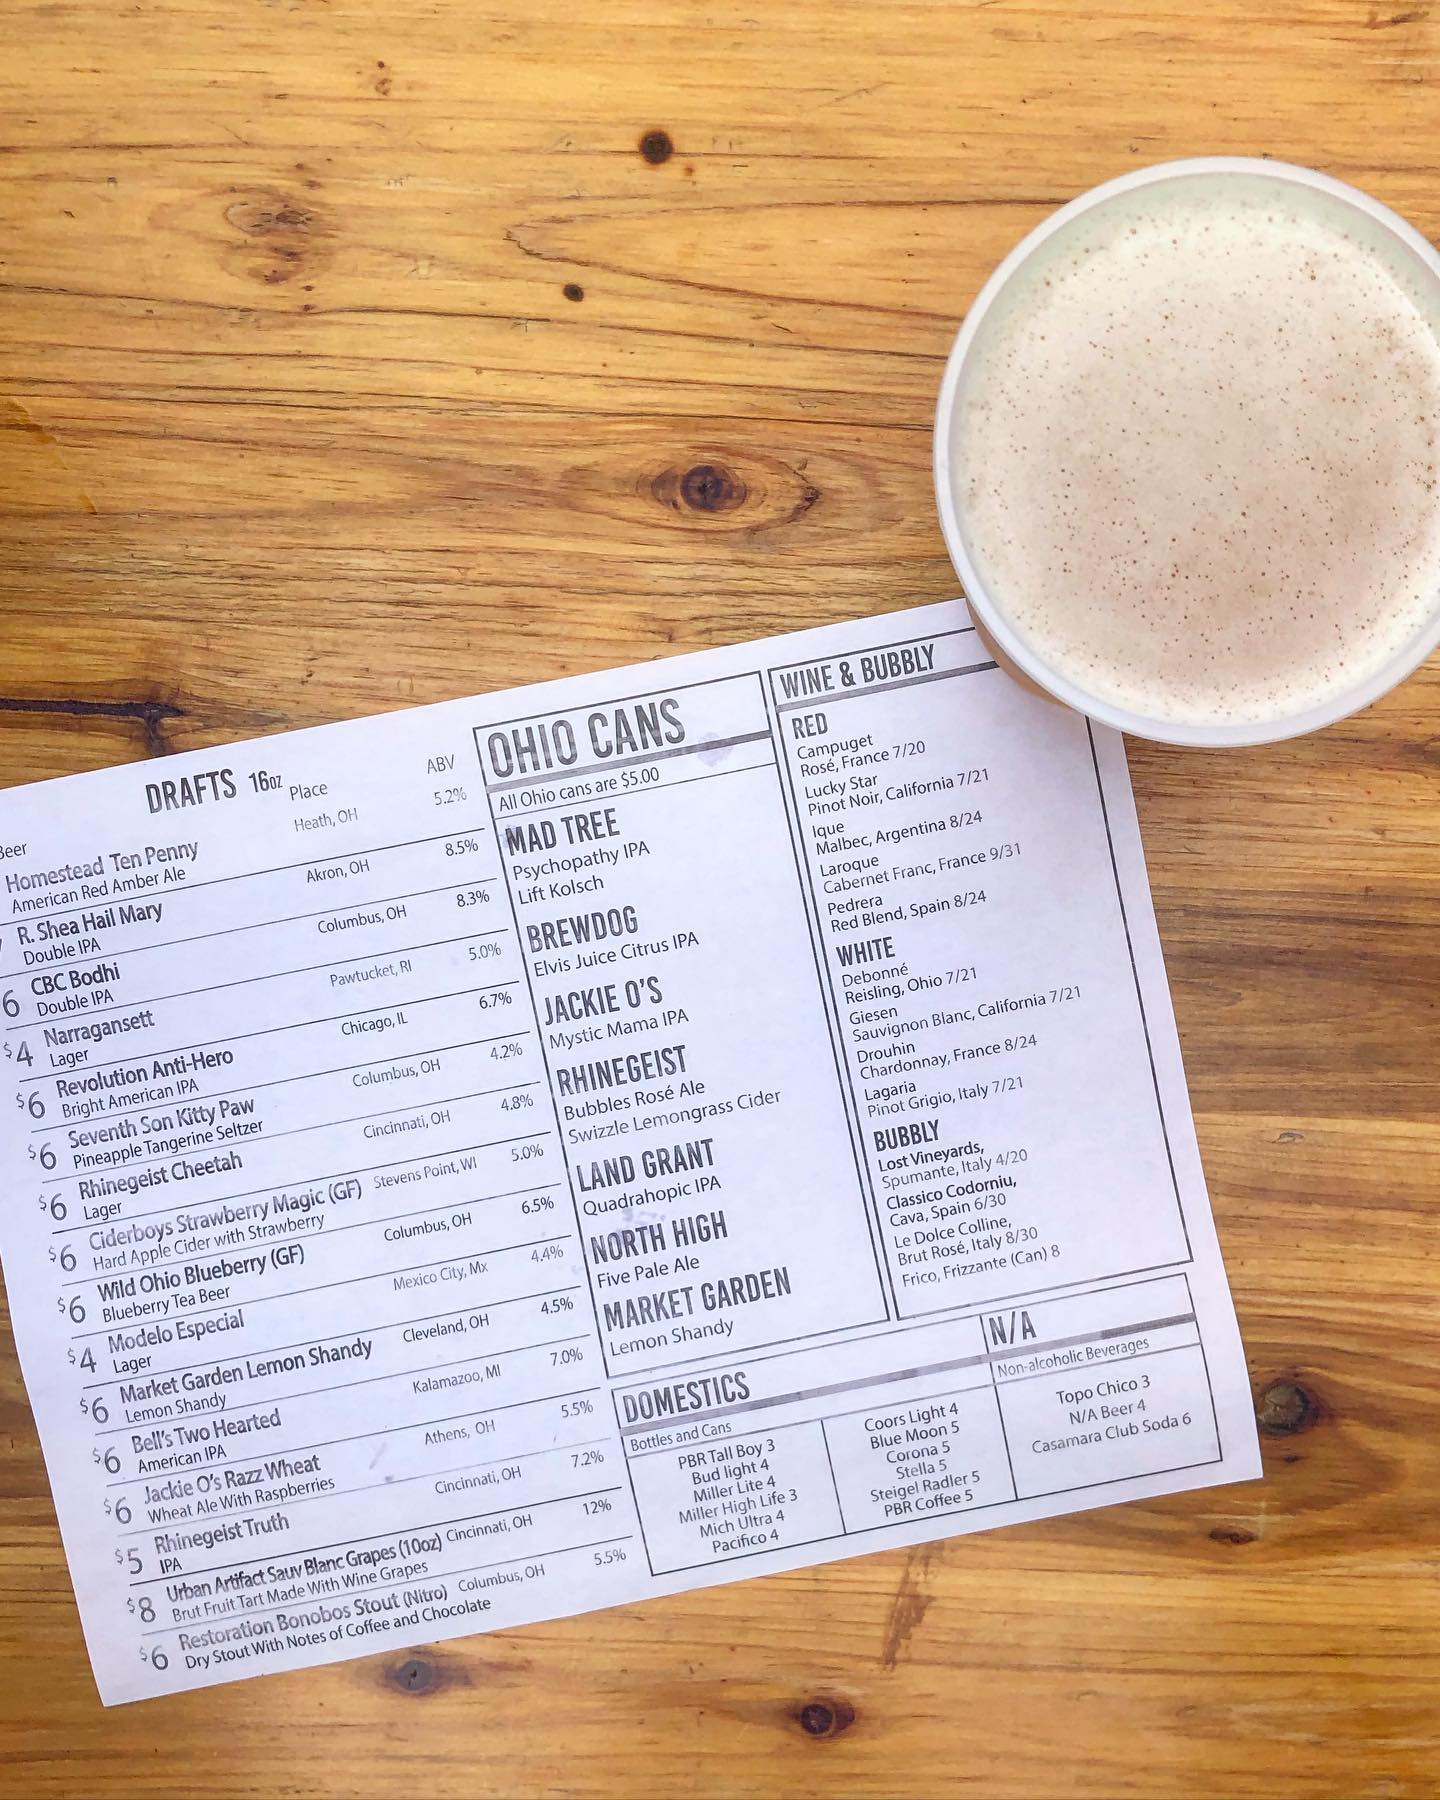 DRAFTS 16oz Place ABV
Beer
Homestead Ten Penny Heath, OH 5.2%
American Red Amber Ale
R. Shea Hail Mary Akron, OH 8.5%
Double IPA
6 CBC Bodhi Columbus, OH 8.3%
Double IPA
$4 Narragansett Pawtucket, RI 5.0%
Lager
$6 Revolution Anti-Hero Chicago, IL 6.7%
Bright American IPA
$6 Seventh Son Kitty Paw Columbus, OH 4.2%
Pineapple Tangerine Seltzer
$6 Rhinegeist Cheetah Cincinnati, OH 4.8%
Lager
$6 Ciderboys Strawberry Magic (GF) Stevens Point, WI 5.0%
Hard Apple Cider with Strawberry
$6 Wild Ohio Blueberry (GF) Columbus, OH 6.5%
Blueberry Tea Beer
$4 Modelo Especial Mexico City, Mx 4.4%
Lager
$6 Market Garden Lemon Shandy Cleveland, OH 4.5%
Lemon Shandy
$6 Bell's Two Hearted Kalamazoo, MI 7.0%
American IPA
$6 Jackie O's Razz Wheat Athens, OH 5.5%
Wheat Ale With Raspberries
$5 Rhinegeist Truth Cincinnati, OH 7.2%
IPA
$8 Urban Artifact Sauv Blanc Grapes (10oz) Cincinnati, OH 12%
Brut Fruit Tart Made With Wine Grapes
$6 Restoration Bonobos Stout (Nitro) Columbus, OH 5.5%
Dry Stout With Notes of Coffee and Chocolate
OHIO CANS
All Ohio cans are $5.00
MAD TREE
Psychopathy IPA
Lift Kolsch
BREWDOG
Elvis Juice Citrus IPA
JACKIE O'S
Mystic Mama IPA
RHINEGEIST
Bubbles Rosé Ale
Swizzle Lemongrass Cider
LAND GRANT
Quadrahopic IPA
NORTH HIGH
Five Pale Ale
MARKET GARDEN
Lemon Shandy
WINE & BUBBLY
RED
Campuget
Rosé, France 7/20
Lucky Star
Pinot Noir, California 7/21
Ique
Malbec, Argentina 8/24
Laroque
Cabernet Franc, France 9/31
Pedrera
Red Blend, Spain 8/24
WHITE
Debonné
Reisling, Ohio 7/21
Giesen
Sauvignon Blanc, California 7/21
Drouhin
Chardonnay, France 8/24
Lagaria
Pinot Grigio, Italy 7/21
BUBBLY
Lost Vineyards,
Spumante, Italy 4/20
Classico Codorniu,
Cava, Spain 6/30
Le Dolce Colline,
Brut Rosé, Italy 8/30
Frico, Frizzante (Can) 8
DOMESTICS
Bottles and Cans
PBR Tall Boy 3
Bud light 4
Miller Lite 4
Miller High Life 3
Mich Ultra 4
Pacifico 4
Coors Light 4
Blue Moon 5
Corona 5
Stella 5
Steigel Radler 5
PBR Coffee 5
N/A
Non-alcoholic Beverages
Topo Chico 3
N/A Beer 4
Casamara Club Soda 6